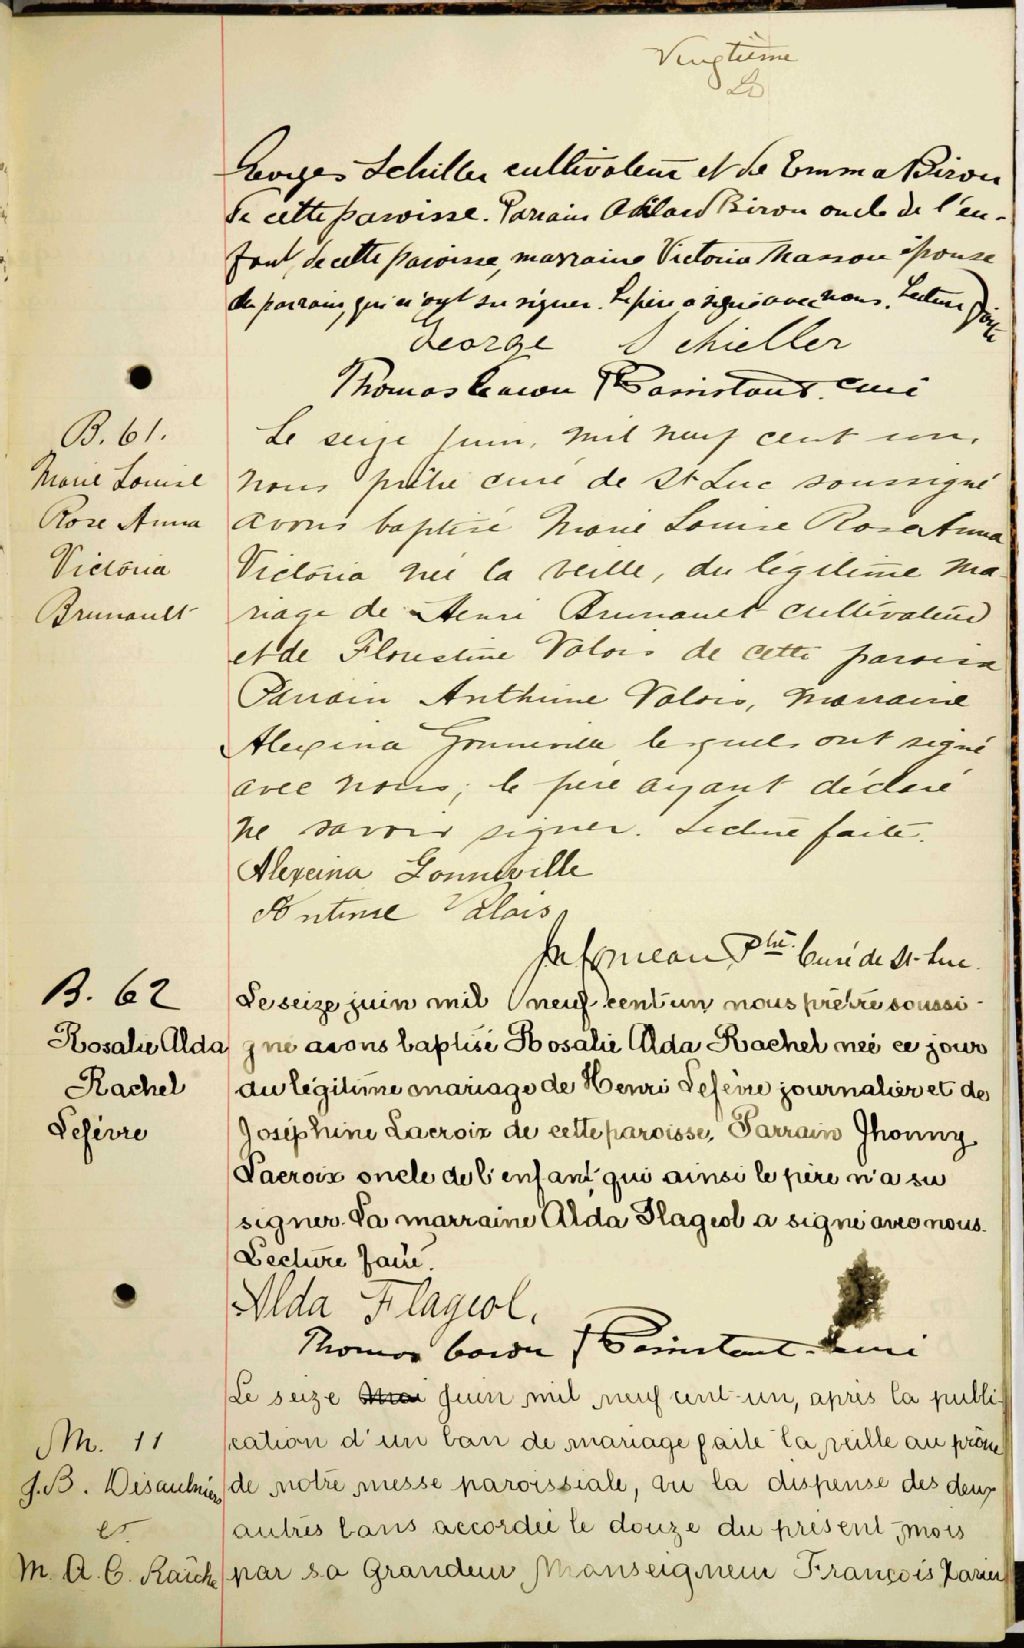 Vingtième
Georges Schiller cultivateur et de Emma Biron
de cette paroisse. Parrain Adélard Biron oncle de l'en-
fant, de cette paroisse, marraine Victoria Masson épouse
du parrain, qui n'ont su signer. Le père a signé avec nous. Lecture faite
George Schieller
Thomas Caron Ptre assistant-curé
B. 61.
Marie Louise
Rose Anna
Victoria
Brunault
Le seize juin, mil neuf cent un,
nous prêtre curé de St Luc soussigné
avons baptisé Marie Louise Rose Anna
Victoria née la veille, du légitime ma-
riage de Henri Brunault cultivateur
et de Florestine Valois de cette paroisse
Parrain Anthime Valois, marraine
Alexina Gonneville lesquels ont signé
avec nous; le père ayant déclaré
ne savoir signer. Lecture faite.
Alexcina Gonneville
Antime Valois
Ptre Curé de St-Luc.
B. 62
Rosalie Alda
Rachel
Lefèvre
Le seize juin mil neuf-cent un, nous prêtre soussi-
gné avons baptisé Rosalie Alda Rachel née ce jour
du légitime mariage de Henri Lefèvre journalier et de
Joséphine Lacroix de cette paroisse. Parrain Jhonny
Lacroix oncle de l'enfant, qui ainsi le père n'a su
signer. La marraine Alda Flageol a signé avec nous.
Lecture faite.
Alda Flageol.
Thomas Caron Ptre assistant-curé
M. 11
J.B. Désaulniers
et
M. A. C. Raîche
Le seize mai juin mil neuf cent-un, après la publi-
cation d'un ban de mariage faite la veille au prône
de notre messe paroissiale, vu la dispense des deux
autres bans accordée le douze du présent mois
par sa Grandeur Monseigneur François Xavier